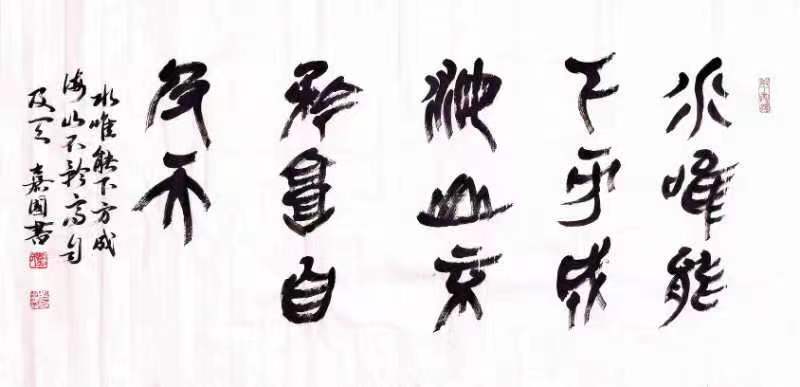 水唯能
下方成
海山不
矜高自
及天
水唯能下方成
海山不矜高自
及天 嘉国書